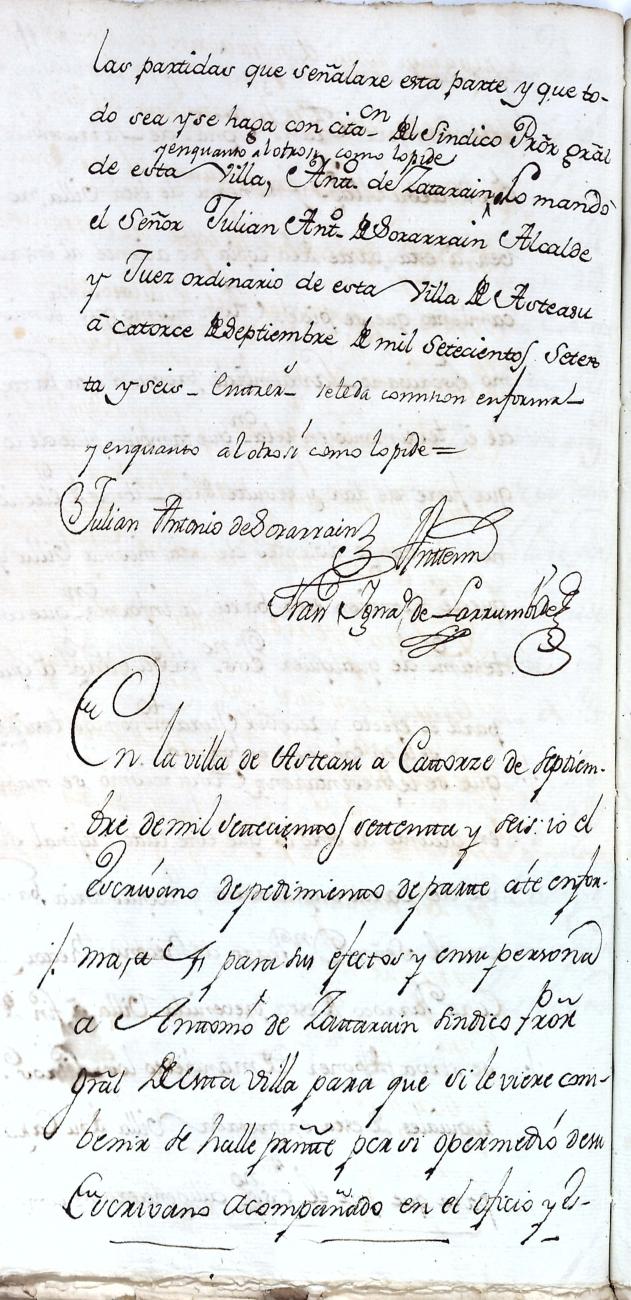 las partidas que señalare esta parte y que to-
do sea y se haga con cita-cn del Sindico Pror gral
y enquanto al otrosi como lo pide
de esta Villa, Anto. de Zatarain, Lo mandó
el Señor Julian Anto. de Sorarrain Alcalde
y Juez ordinario de esta Villa de Asteasu
á catorce de Septiembre de mil setecientos seten
ta y seis - Entrer- sele da comision en forma
y enquanto al otrosi como lo pide =
Julian Antonio de Sorarrain
Antemi
Fran Igna de Larrumbide
En la villa de Asteasu a Cattorze de septiem-
bre de mil settecientos settenta y seis: io el
Escrivano de pedimiento de parte cite en for-
ma, a para sus efectos y en su persona
a Anttonio de Zattarain Sindico Pror
gral de esta Villa para que si le viere com-
benir se halle prñte por si o por medio de su
Escrivano Acompañado en el oficio y Es-